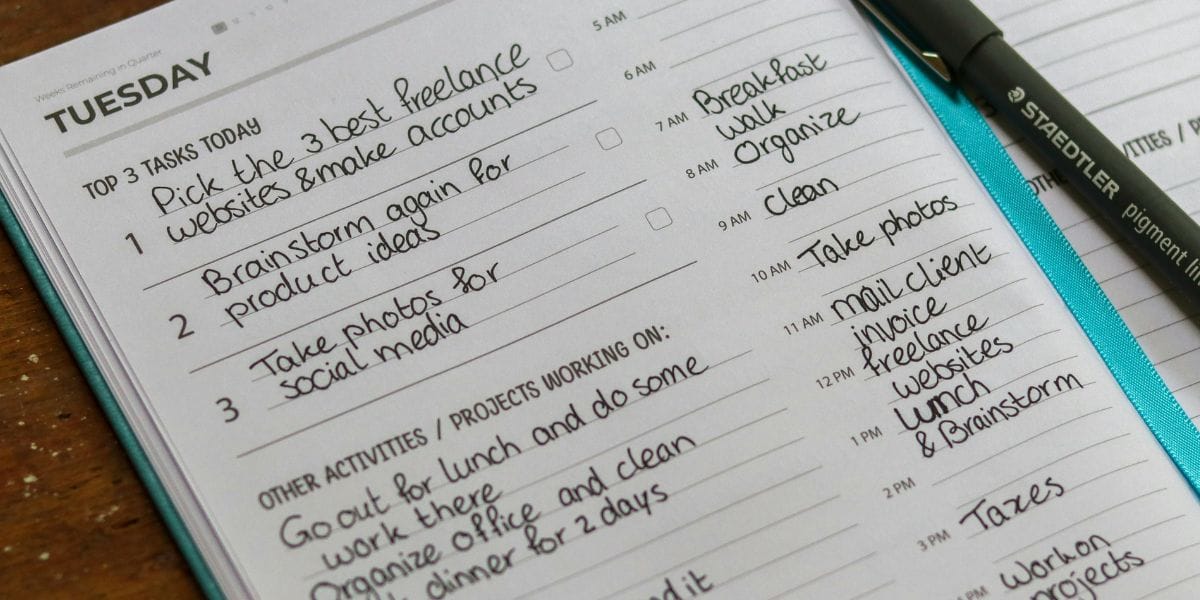 Weeks Remaining in Quarter
TUESDAY
TOP 3 TASKS TODAY
Pick the 3 best freelance
1 websites & make accounts
Brainstorm again for
2 product ideas
Take photos for
3 social media
OTHER ACTIVITIES / PROJECTS WORKING ON:
Go out for lunch and do some
work there
Organize office and clean
dinner for 2 days
it
5 AM
6 AM
7 AM Breakfast
walk
8 AM Organize
9 AM Clean
10 AM Take photos
11 AM mail client
invoice
12 PM freelance
websites
1 PM lunch
& Brainstorm
2 PM
3 PM Taxes
PM Work on
projects
STAEDTLER
pigment